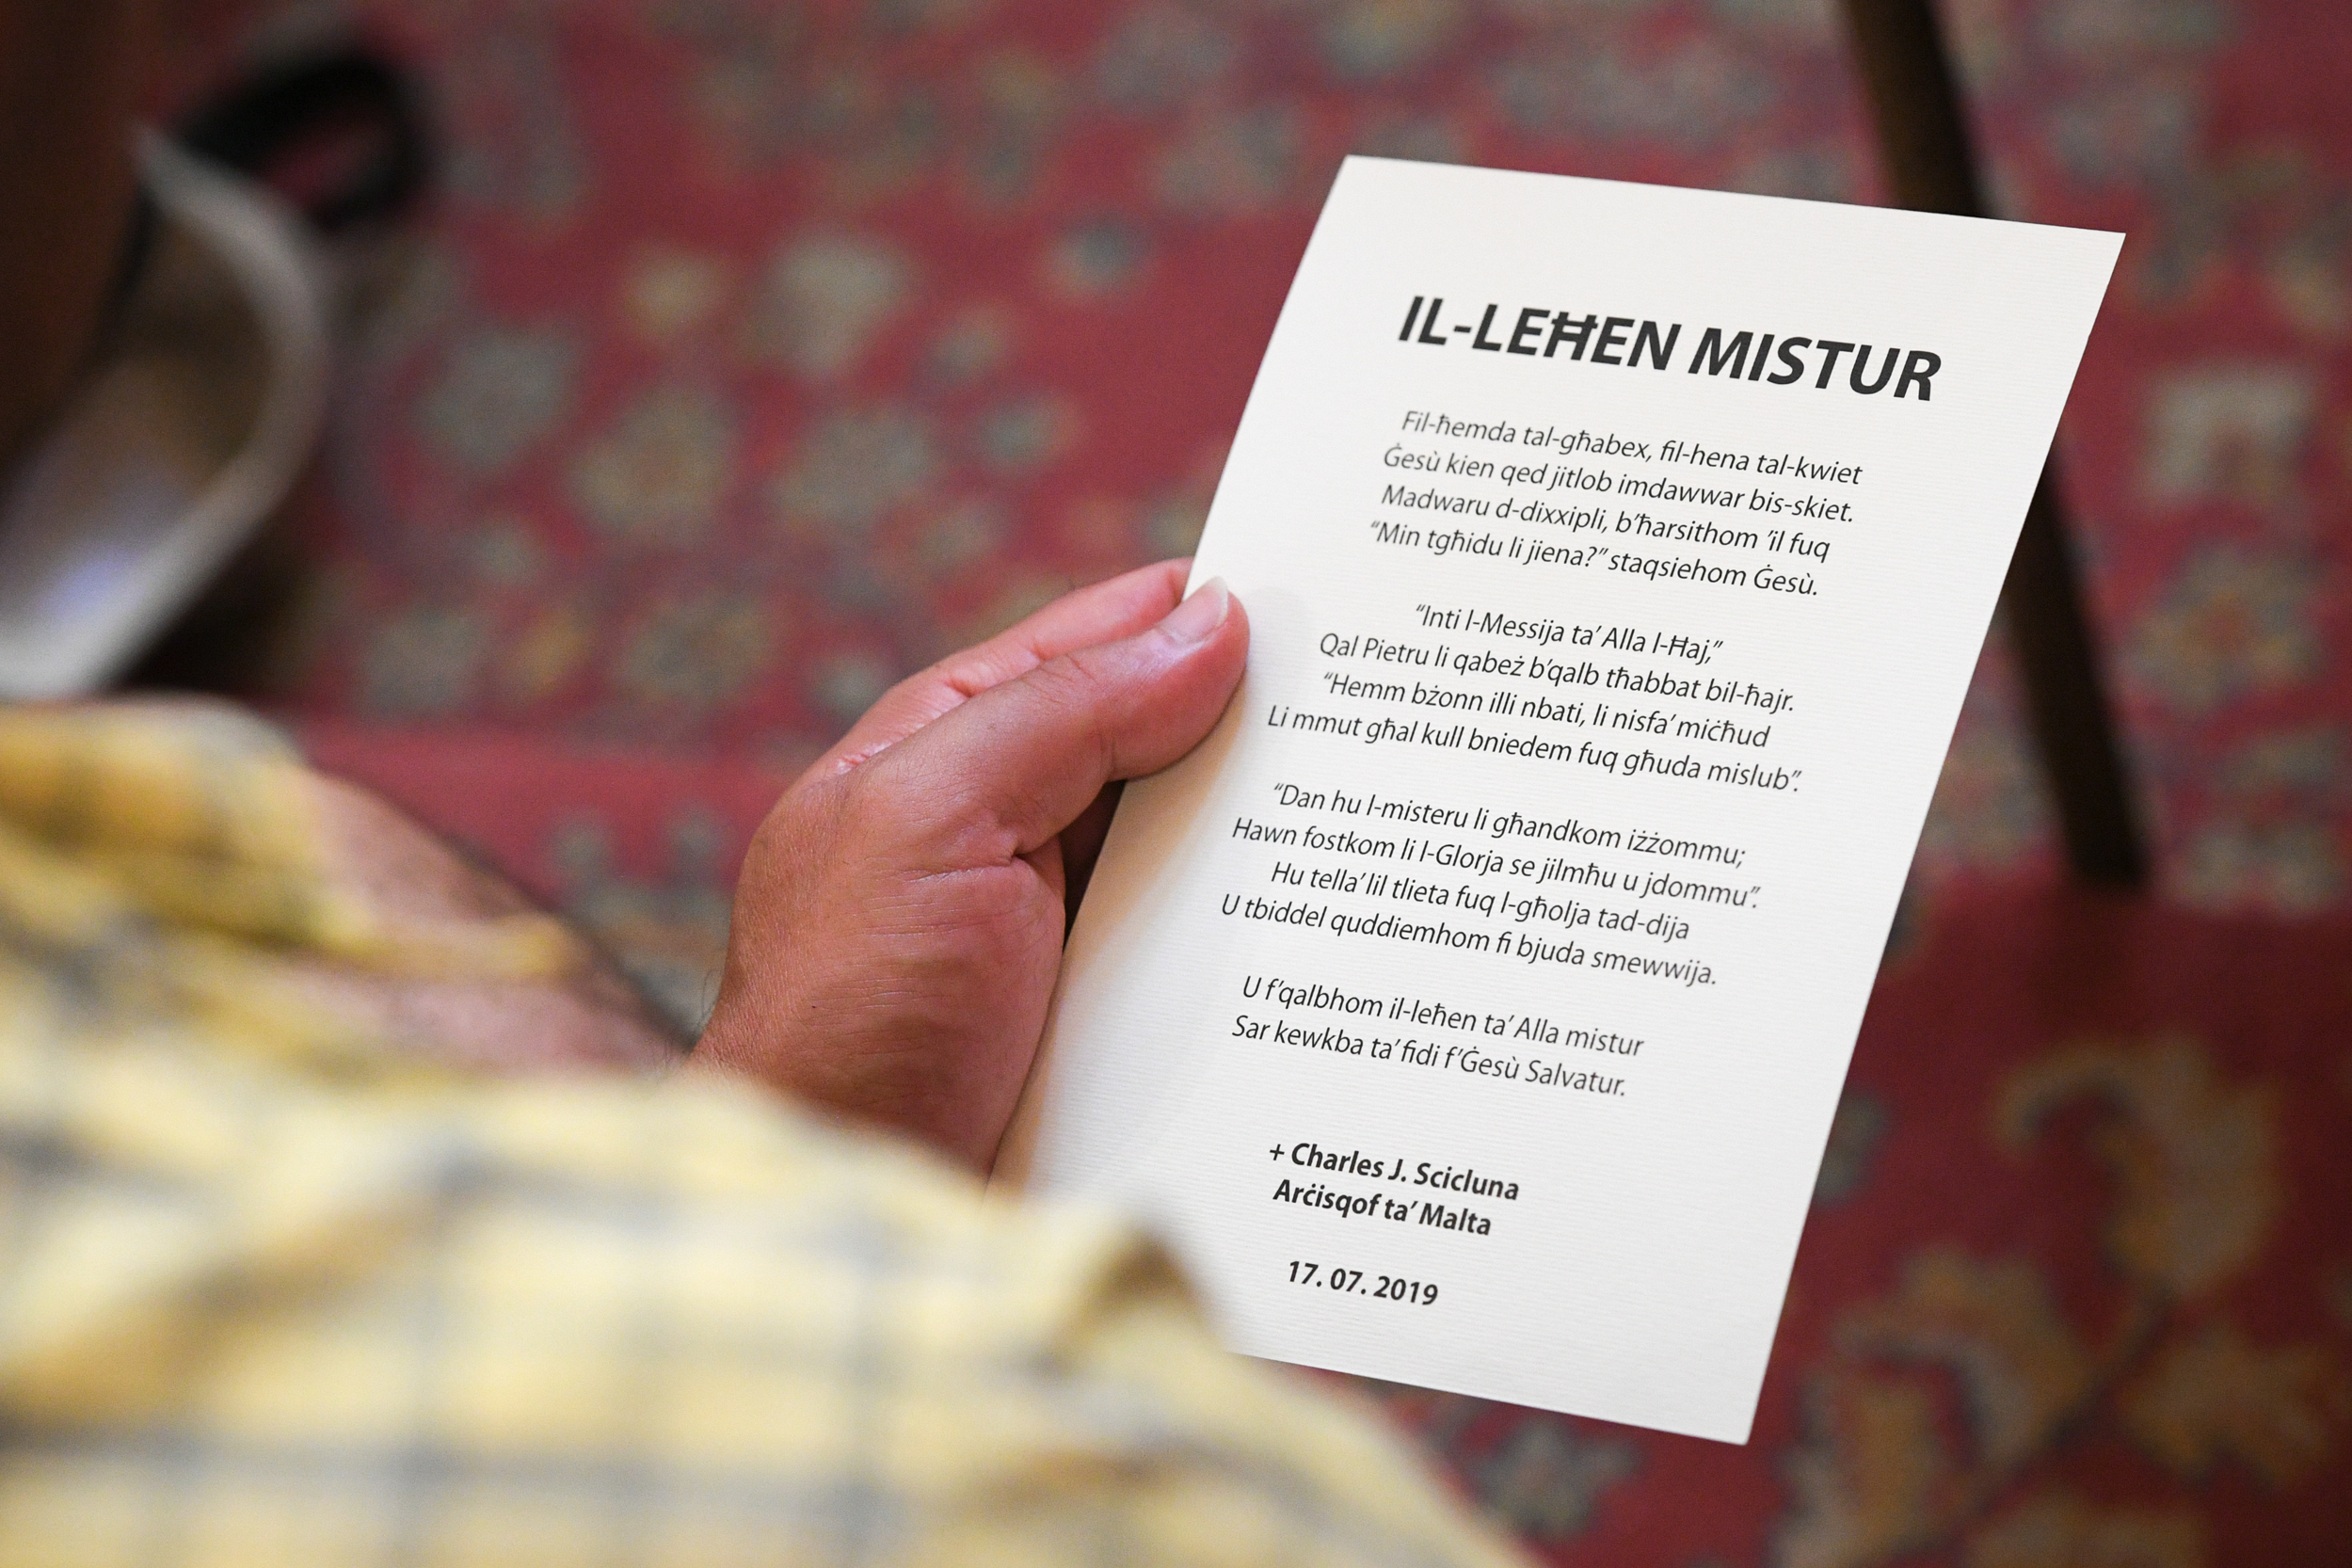 IL-LEĦEN MISTUR
Fil-ħemda tal-għabex, fil-hena tal-kwiet
Ġesù kien qed jitlob imdawwar bis-skiet.
Madwaru d-dixxipli, b’ħarsithom ’il fuq
“Min tgħidu li jiena?” staqsiehom Ġesù.
“Inti l-Messija ta’ Alla l-Ħaj,”
Qal Pietru li qabeż b’qalb tħabbat bil-ħajr.
“Hemm bżonn illi nbati, li nisfa’ miċħud
Li mmut għal kull bniedem fuq għuda mislub”.
“Dan hu l-misteru li għandkom iżżommu;
Hawn fostkom li l-Glorja se jilmħu u jdommu”.
Hu tella’ lil tlieta fuq l-għolja tad-dija
U tbiddel quddiemhom fi bjuda smewwija.
U f’qalbhom il-leħen ta’ Alla mistur
Sar kewkba ta’ fidi f’Ġesù Salvatur.
+ Charles J. Scicluna
Arċisqof ta’ Malta
17. 07. 2019